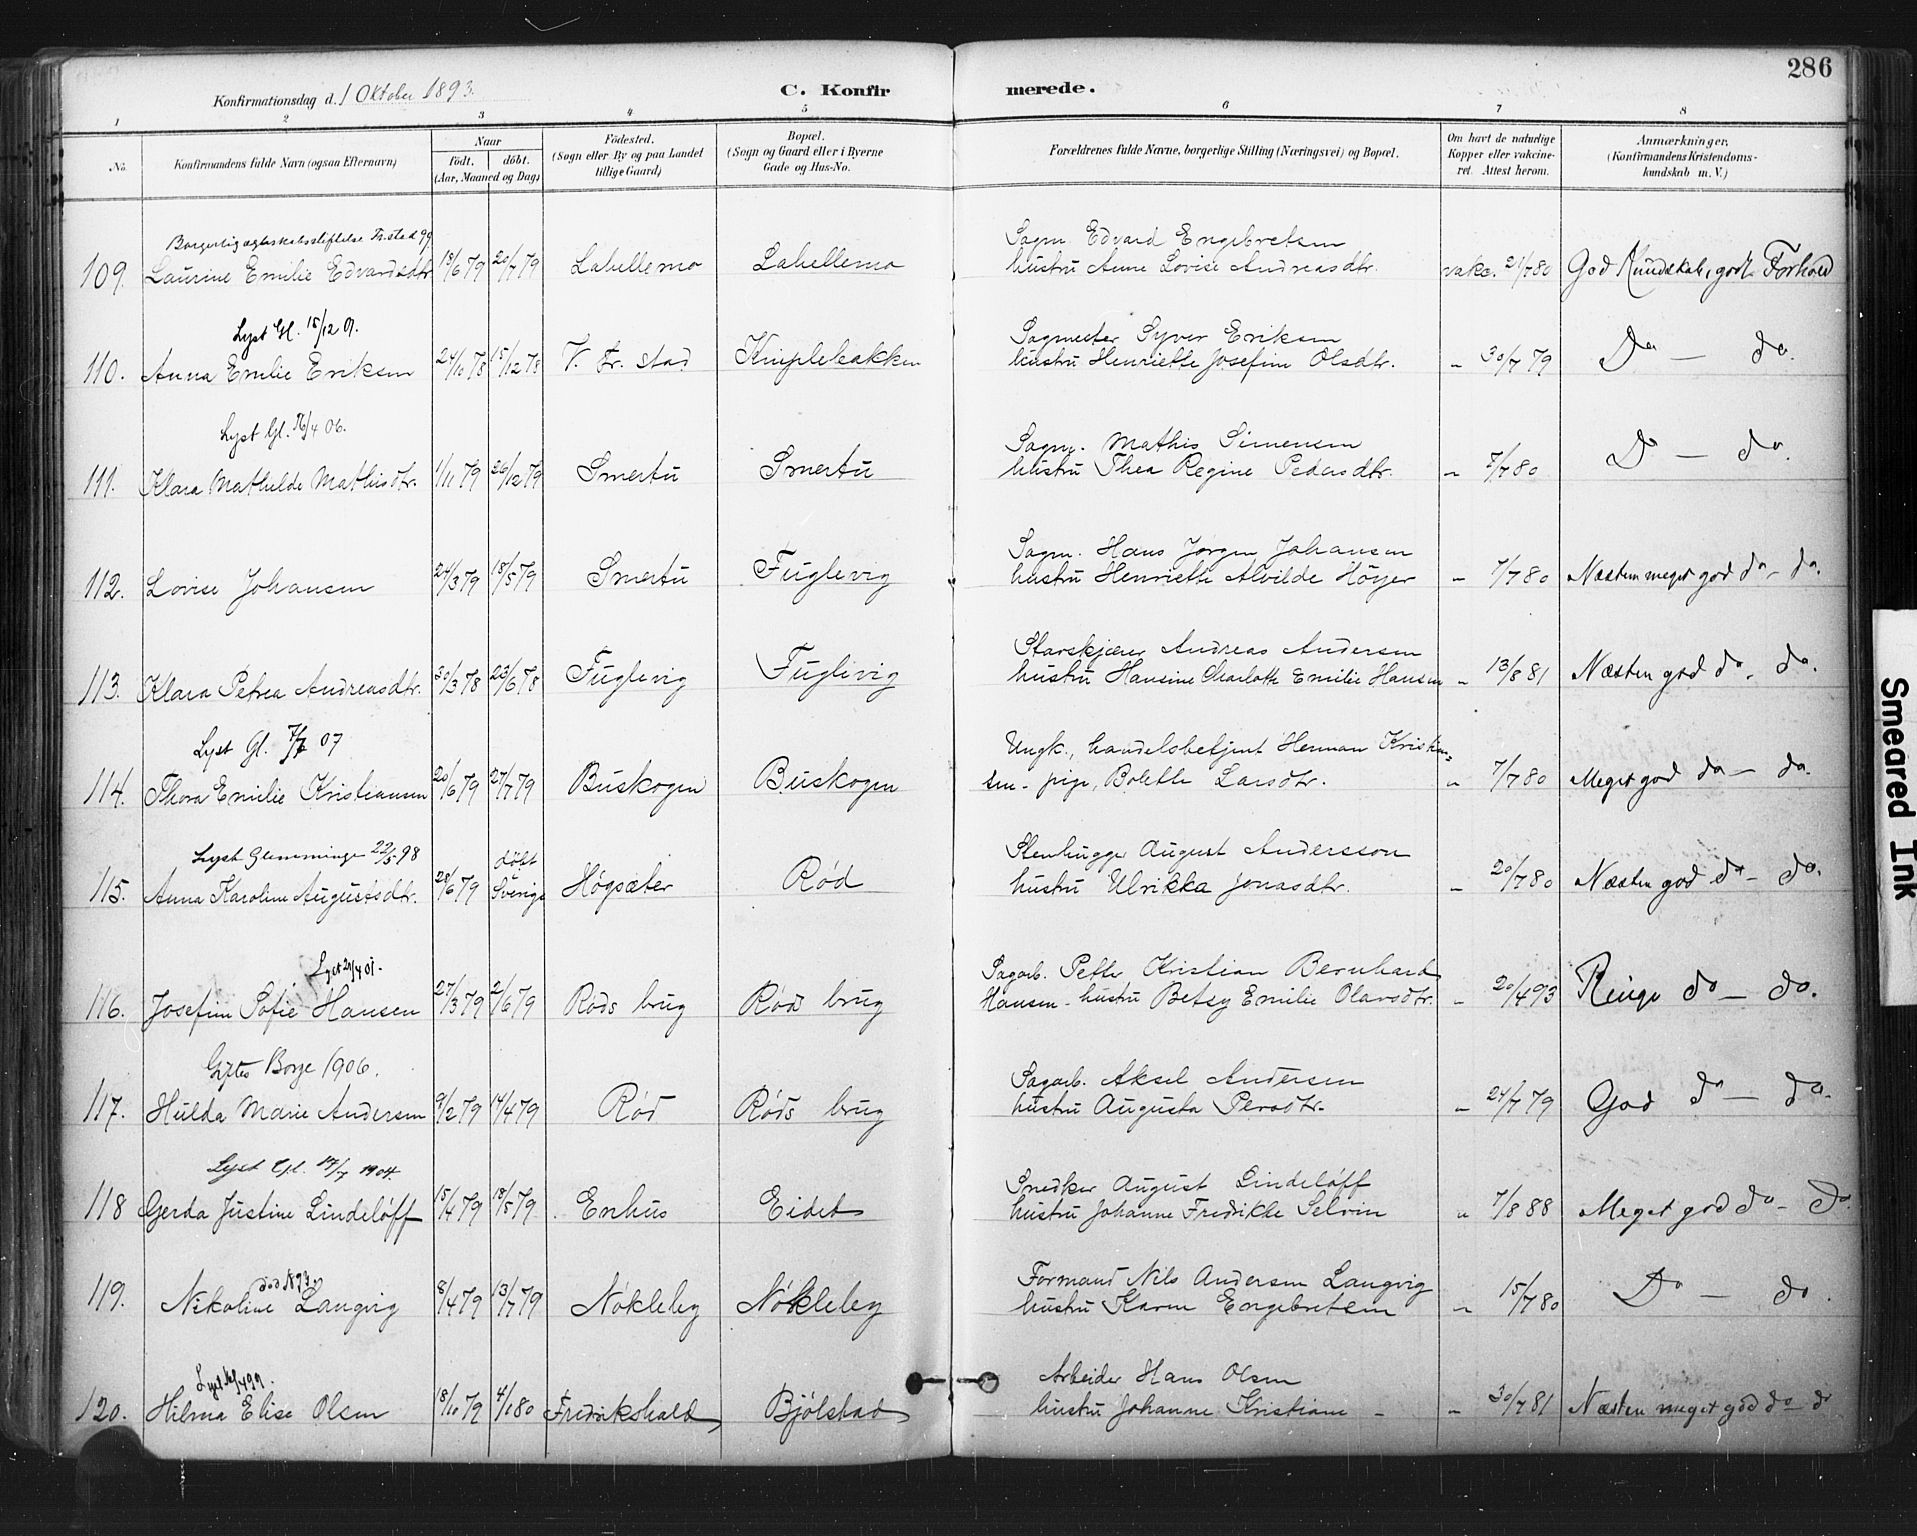 286
Konfirmationsdag d. 1 Oktober 1893.
C. Konfirmerede.
1 2 3 4 5 6 7 8
No.
Konfirmandens fulde Navn (ogsaa Efternavn)
Naar
födt. döbt.
(Aar, Maaned og Dag)
Födested.
(Sogn eller By og paa Landet
tillige Gaard)
Bopæl.
(Sogn og Gaard eller i Byerne
Gade og Hus-No.
Forældrenes fulde Navne, borgerlige Stilling (Næringsvei) og Bopæl.
Om havt de naturlige
Kopper eller vakcine-
ret. Attest herom.
Anmærkninger,
(Konfirmandens Kristendoms-
kundskab m. V.)
Borgerlig ægteskabsstiftelse Fr.stad 99
Sagm. Edvard Engebretsen
109. Laurine Emilie Edvardsdtr 18/6 79 20/7 79 Lahellemo Lahellemo hustru Anne Lovise Andreasdtr. vakc. 21/7 80 God Kundskab, godt Forhold
Lyst Gl. 15/12 01.
Sagmester Syver Eriksen
110. Anna Emilie Eriksen 24/10 78 15/12 78 V. Fr. stad Kniplebakken hustru Henriette Josefine Olsdtr. „ 30/7 79 Do — do.
Lyst Gl. 16/4 06.
Sagm. Mathis Simensen
111. Klara Mathilde Mathisdtr. 1/11 79 26/12 79 Smertu Smertu hustru Thea Regine Pedersdtr. „ 7/7 80 Do — do.
Sagm. Hans Jørgen Johansen
112. Lovise Johansen 24/3 79 18/5 79 Smertu Fuglevig hustru Henriette Alvilde Höyer „ 7/7 80 Næsten meget god do - do.
Stavskjærer Andreas Andersen
113. Klara Petrea Andreasdtr. 30/3 78 23/6 78 Fuglevig Fuglevig hustru Hansine Charlotte Emilie Hansen „ 13/8 81 Næsten god do - do.
Lyst Gl. 7/7 07
Ungk., handelsbetjent Herman Kristian-
114. Thora Emilie Kristiansen 20/6 79 27/7 79 Buskogen Buskogen sen - pige, Bolette Larsdtr. „ 7/7 80 Meget god do — do.
Lyst Glemminge 22/5 98
Stenhugger August Andersson
115. Anna Karoline Augustsdtr. 28/6 79 döbt Sverige Høgsæter Rød hustru Ulrikka Jonasdtr. „ 20/7 80 Næsten god do - do.
Lyst 21/4 01.
Sagarb. Petter Kristian Bernhard
116. Josefine Sofie Hansen 27/3 79 2/6 79 Røds brug Røds brug Hansen - hustru Betsy Emilie Olavsdtr. „ 20/4 93 Ringe do — do.
Giftes Borge 1906.
Sagarb. Aksel Andersen
117. Hulda Marie Andersen 9/2 79 14/4 79 Rød Røds brug hustru Augusta Persdtr. „ 24/7 79 God do — do.
Lyst Gl. 17/7 1904.
Snedker August Lindelöff
118 Gerda Justine Lindelöff 15/4 79 18/5 79 Enhus Eidet hustru Johanne Fredrikke Selvin „ 7/8 88 Meget god do - do.
död 1893
Formand Nils Andersen Langvig
119. Nikoline Langvig 8/4 79 13/7 79 Nøkleby Nøkleby hustru Karen Engebretsen „ 15/7 80 Do — do.
Arbeider Hans Olsen
120. Hilma Elise Olsen 18/10 79 4/1 80 Fredrikshald Bjølstad hustru Johanne Kristiane - „ 30/7 81 Næsten meget god do - do
Smeared Ink